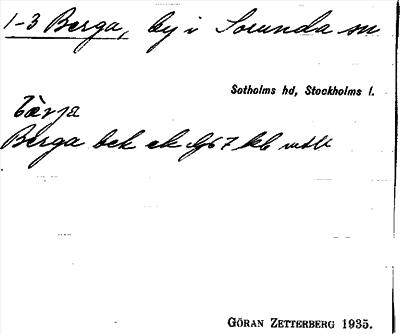 1-3 Berga, by i Sorunda sn
Sotholms hd, Stockholms l.
bærja
Berga bek ek
GÖRAN ZETTERBERG 1935.